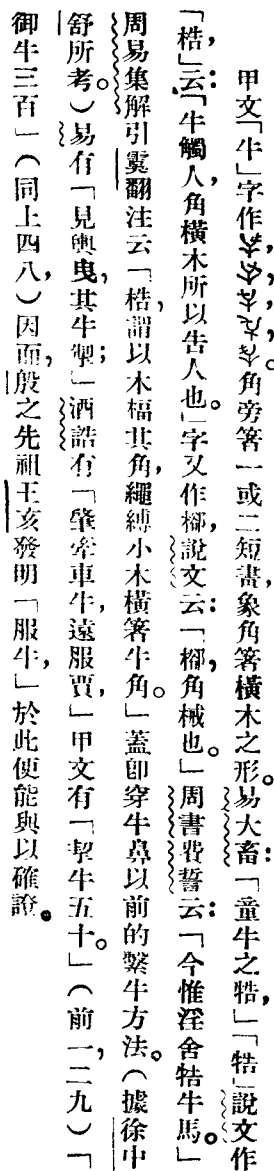 甲文「牛」字作，，，，。角旁箸一或二短畫，象角箸橫木之形。易大畜：「童牛之牿，」「牿」說文作
「梏，」云：「牛觸人，角橫木所以告人也。」字又作㮮，說文云：「㮮，角械也。」周書費誓云：「今惟淫舍牿牛馬。」
周易集解引虞翻注云「梏，謂以木楅其角，繩縛小木橫箸牛角。」蓋卽穿牛鼻以前的繫牛方法。（據徐中
舒所考。）易有「見輿曳，其牛掣；」酒誥有「肇牽車牛，遠服賈，」甲文有「挈牛五十。」（前一，二九）「
御牛三百」（同上四八）因而，殷之先祖王亥發明「服牛，」於此便能與以確證。